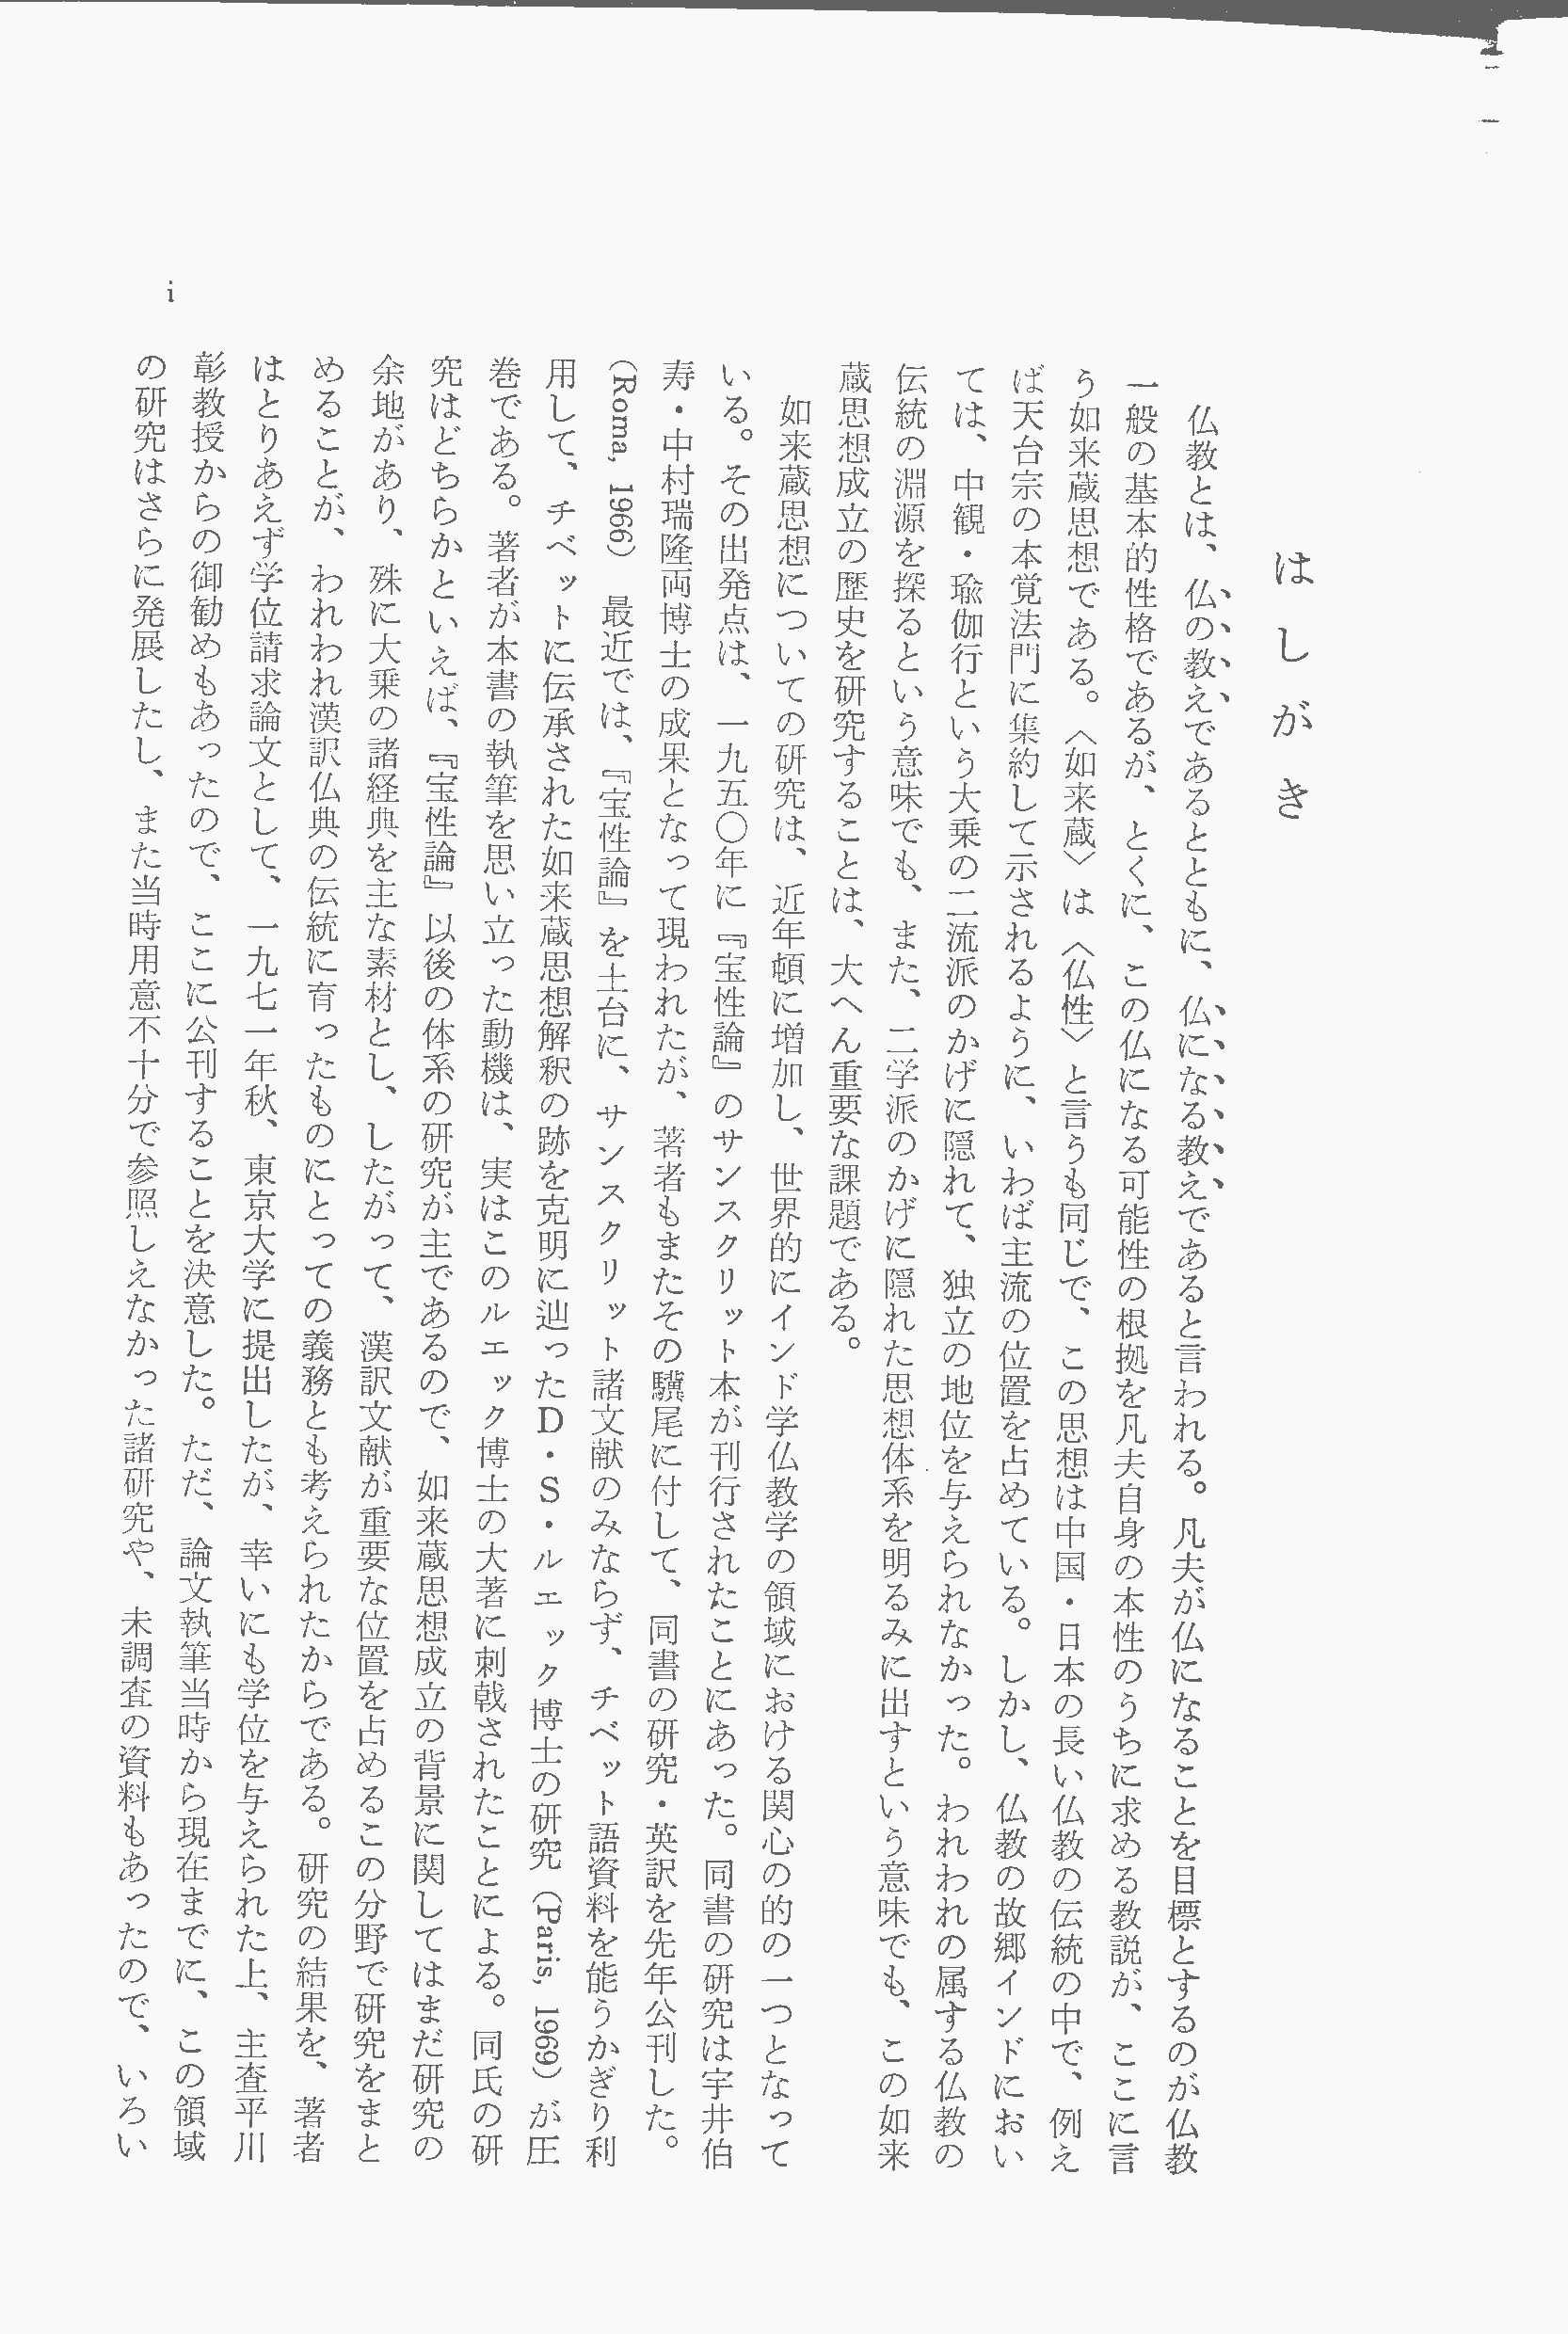 はしがき
仏教とは、仏の教えであるとともに、仏になる教えであると言われる。凡夫が仏になることを目標とするのが仏教
一般の基本的性格であるが、とくに、この仏になる可能性の根拠を凡夫自身の本性のうちに求める教説が、ここに言
う如来蔵思想である。〈如来蔵〉は〈仏性〉と言うも同じで、この思想は中国・日本の長い仏教の伝統の中で、例え
ば天台宗の本覚法門に集約して示されるように、いわば主流の位置を占めている。しかし、仏教の故郷インドにおい
ては、中観・瑜伽行という大乗の二流派のかげに隠れて、独立の地位を与えられなかった。われわれの属する仏教の
伝統の淵源を探るという意味でも、また、二学派のかげに隠れた思想体系を明るみに出すという意味でも、この如来
蔵思想成立の歴史を研究することは、大へん重要な課題である。
如来蔵思想についての研究は、近年頓に増加し、世界的にインド学仏教学の領域における関心の的の一つとなって
いる。その出発点は、一九五〇年に『宝性論』のサンスクリット本が刊行されたことにあった。同書の研究は宇井伯
寿・中村瑞隆両博士の成果となって現われたが、著者もまたその驥尾に付して、同書の研究・英訳を先年公刊した。
(Roma, 1966) 最近では、『宝性論』を土台に、サンスクリット諸文献のみならず、チベット語資料を能うかぎり利
用して、チベットに伝承された如来蔵思想解釈の跡を克明に辿ったD・S・ルエック博士の研究 (Paris, 1969) が圧
巻である。著者が本書の執筆を思い立った動機は、実はこのルエック博士の大著に刺戟されたことによる。同氏の研
究はどちらかといえば、『宝性論』以後の体系の研究が主であるので、如来蔵思想成立の背景に関してはまだ研究の
余地があり、殊に大乗の諸経典を主な素材とし、したがって、漢訳文献が重要な位置を占めるこの分野で研究をまと
めることが、われわれ漢訳仏典の伝統に育ったものにとっての義務とも考えられたからである。研究の結果を、著者
はとりあえず学位請求論文として、一九七一年秋、東京大学に提出したが、幸いにも学位を与えられた上、主査平川
彰教授からの御勧めもあったので、ここに公刊することを決意した。ただ、論文執筆当時から現在までに、この領域
の研究はさらに発展したし、また当時用意不十分で参照しえなかった諸研究や、未調査の資料もあったので、いろい
i